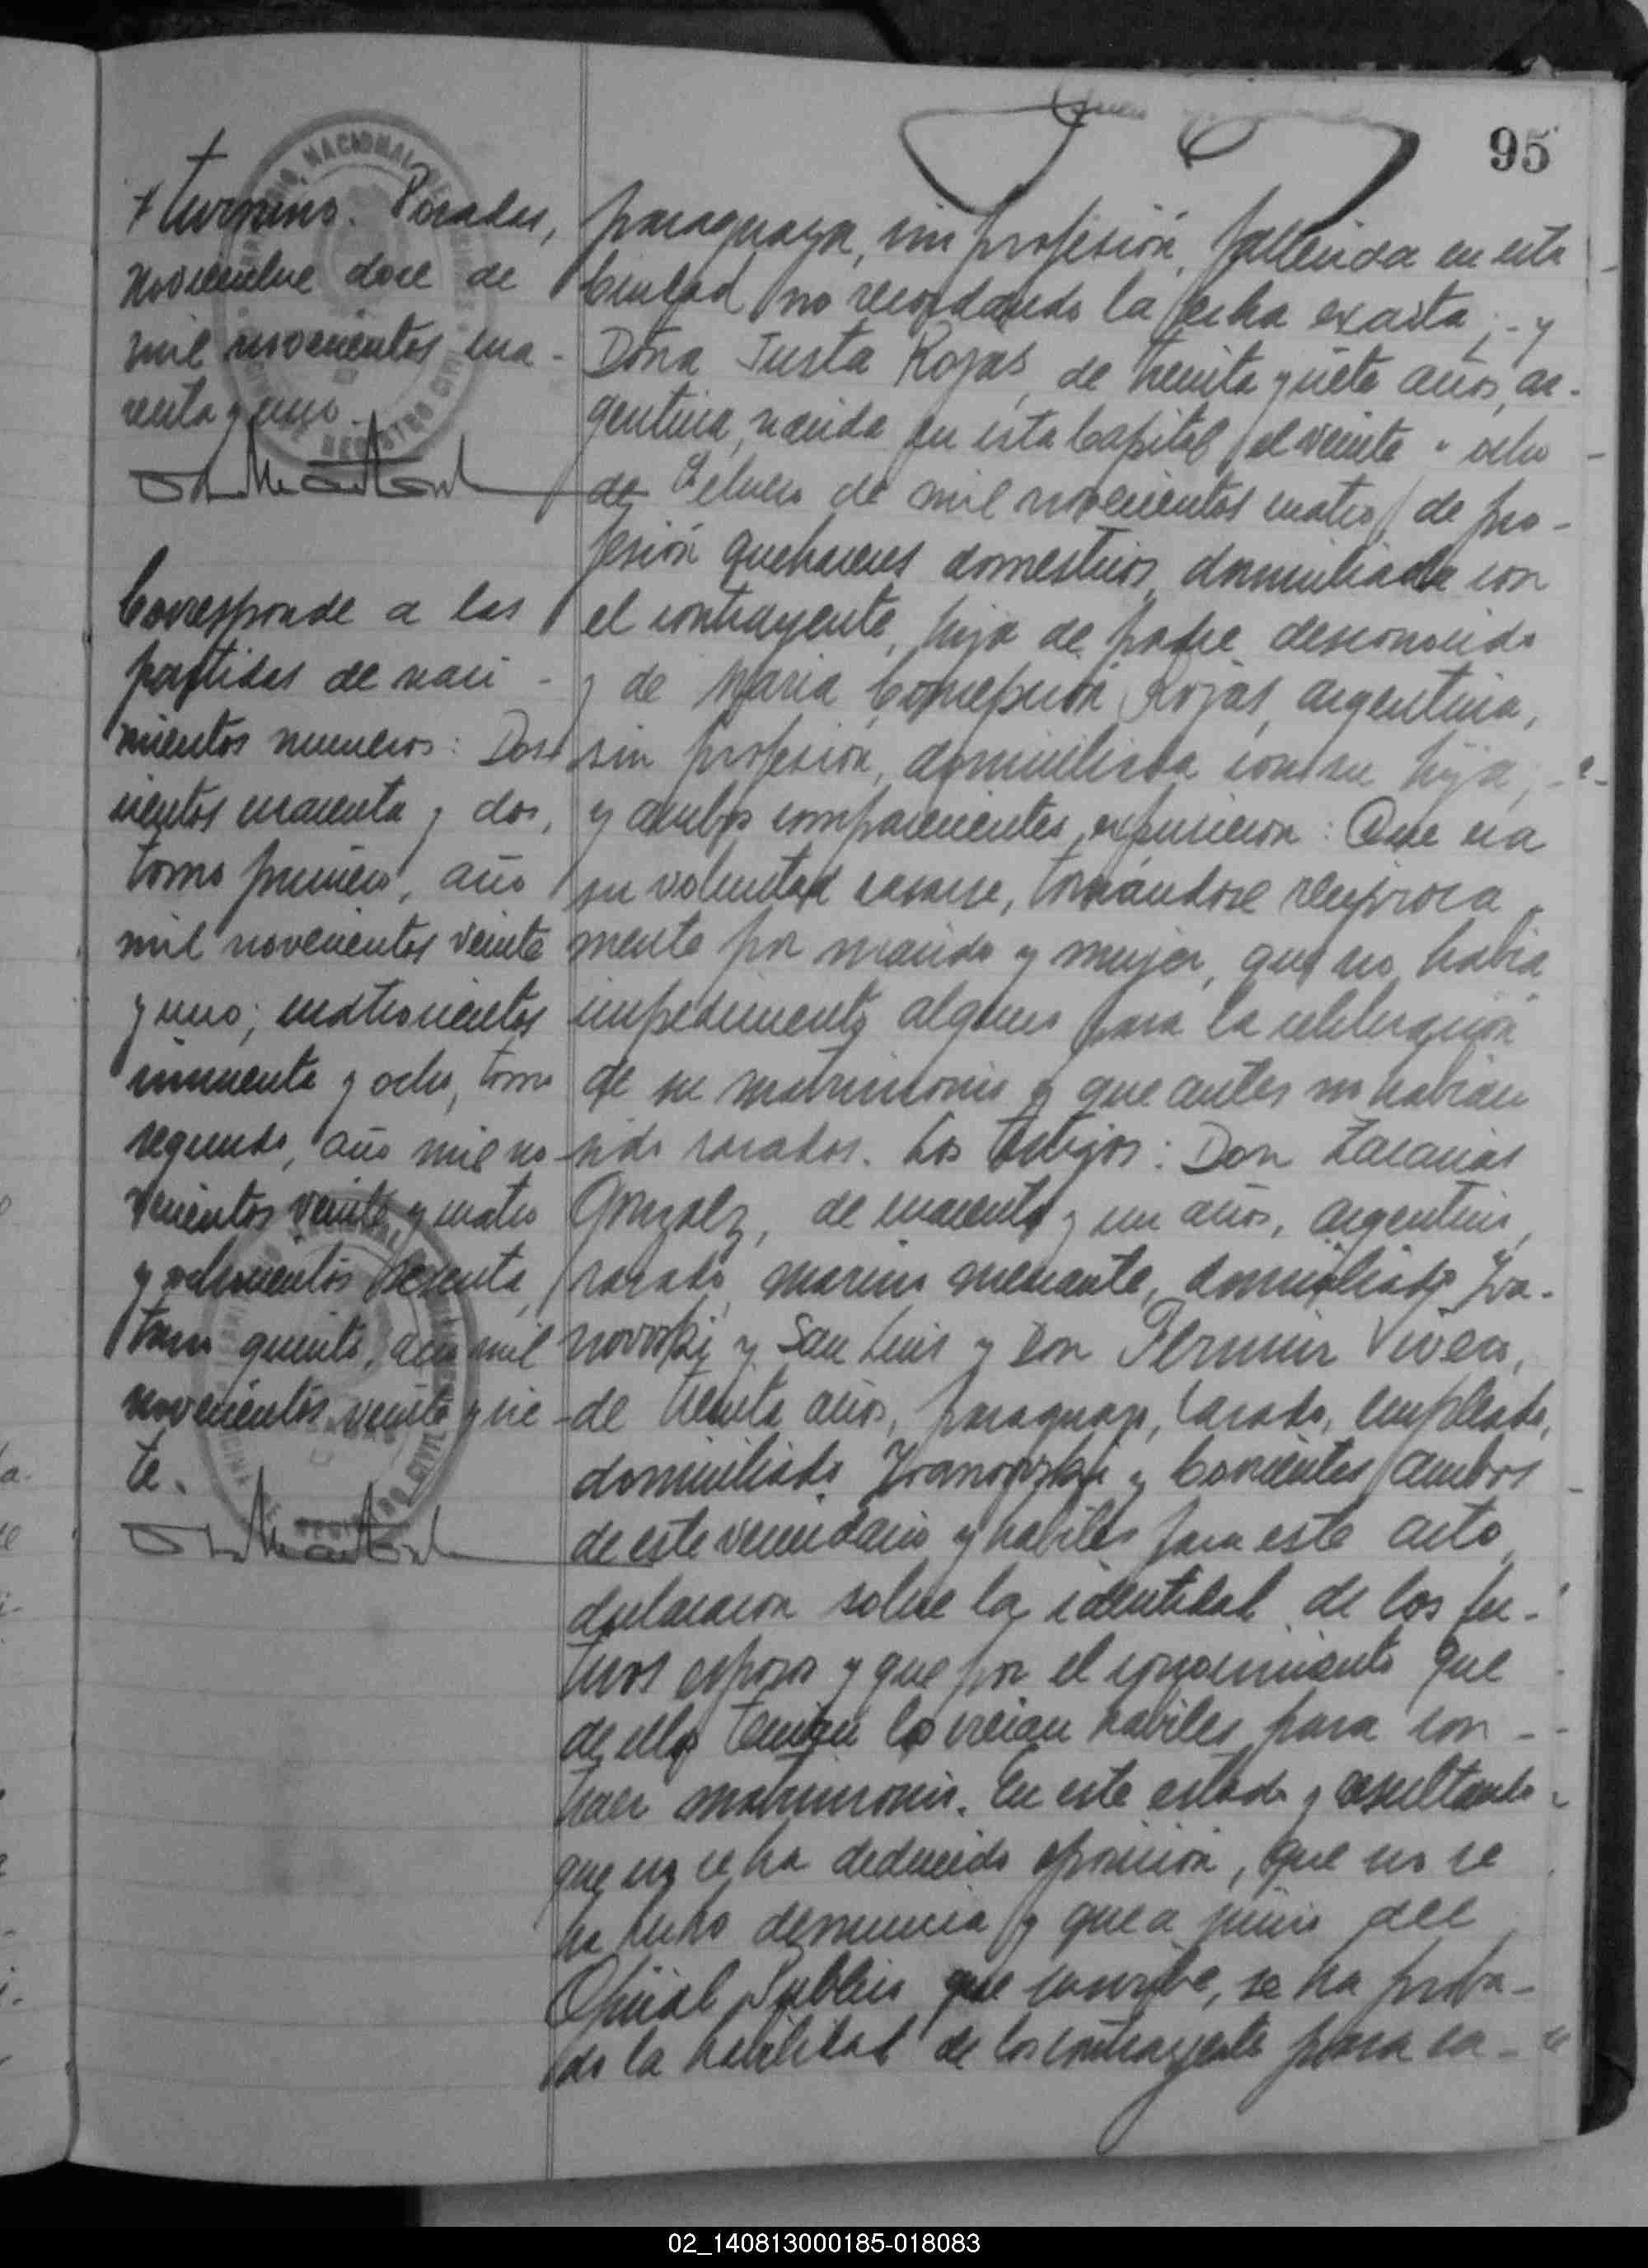 95
+ turnino. Posadas,
noviembre doce de
mil novecientos cua-
renta y uno.
Corresponde a las
partidas de naci-
mientos numeros: Dos
cientos cuarenta y dos,
tomo primero, año
mil novecientos veinte
y uno; cuatrocientos
cincuenta y ocho, tomo
segundo, año mil no-
vecientos veinte y cuatro
y ochocientos sesenta,
tomo quinto, año mil
novecientos veinte y sie-
te.
paraguaya, sin profesión, fallecida en esta
Ciudad no recordando la fecha exacta;- y
Doña Justa Rojas, de treinta y siete años, ar-
gentina, nacida en esta Capital el veinte y ocho
de Febrero de mil novecientos cuatro, de pro-
fesión quehaceres domesticos, domiciliada con
el contrayente, hija de padre desconocido
y de Maria Concepción Rojas, argentina,
sin profesión, domiciliada con su hija;-
y ambos comparecientes, expusieron: Que era
su voluntad casarse, tomándose reciproca
mente por marido y mujer, que no había
impedimento alguno para la celebración
de su matrimonio y que antes no habían
sido casados. Los testigos: Don Zacarias
Gonzalez, de cuarenta y un años, argentino,
casado, marino mercante, domiciliado Ira-
novski y San Luis y Don Fermin Vivero,
de treinta años, paraguayo, casado, empleado,
domiciliado Iranovski y Corrientes, ambos
de este vecindario y habiles para este acto,
declararon sobre la identidad de los fu-
turos esposos y que por el conocimiento que
de ellos tenían los creían habiles para con-
traer matrimonio. En este estado y resultando
que no se ha deducido oposición, que no se
ha hecho denuncia y que a juicio del
Oficial Publico que suscribe, se ha proba-
do la habilidad de los contrayente para ca-
02_140813000185-018083